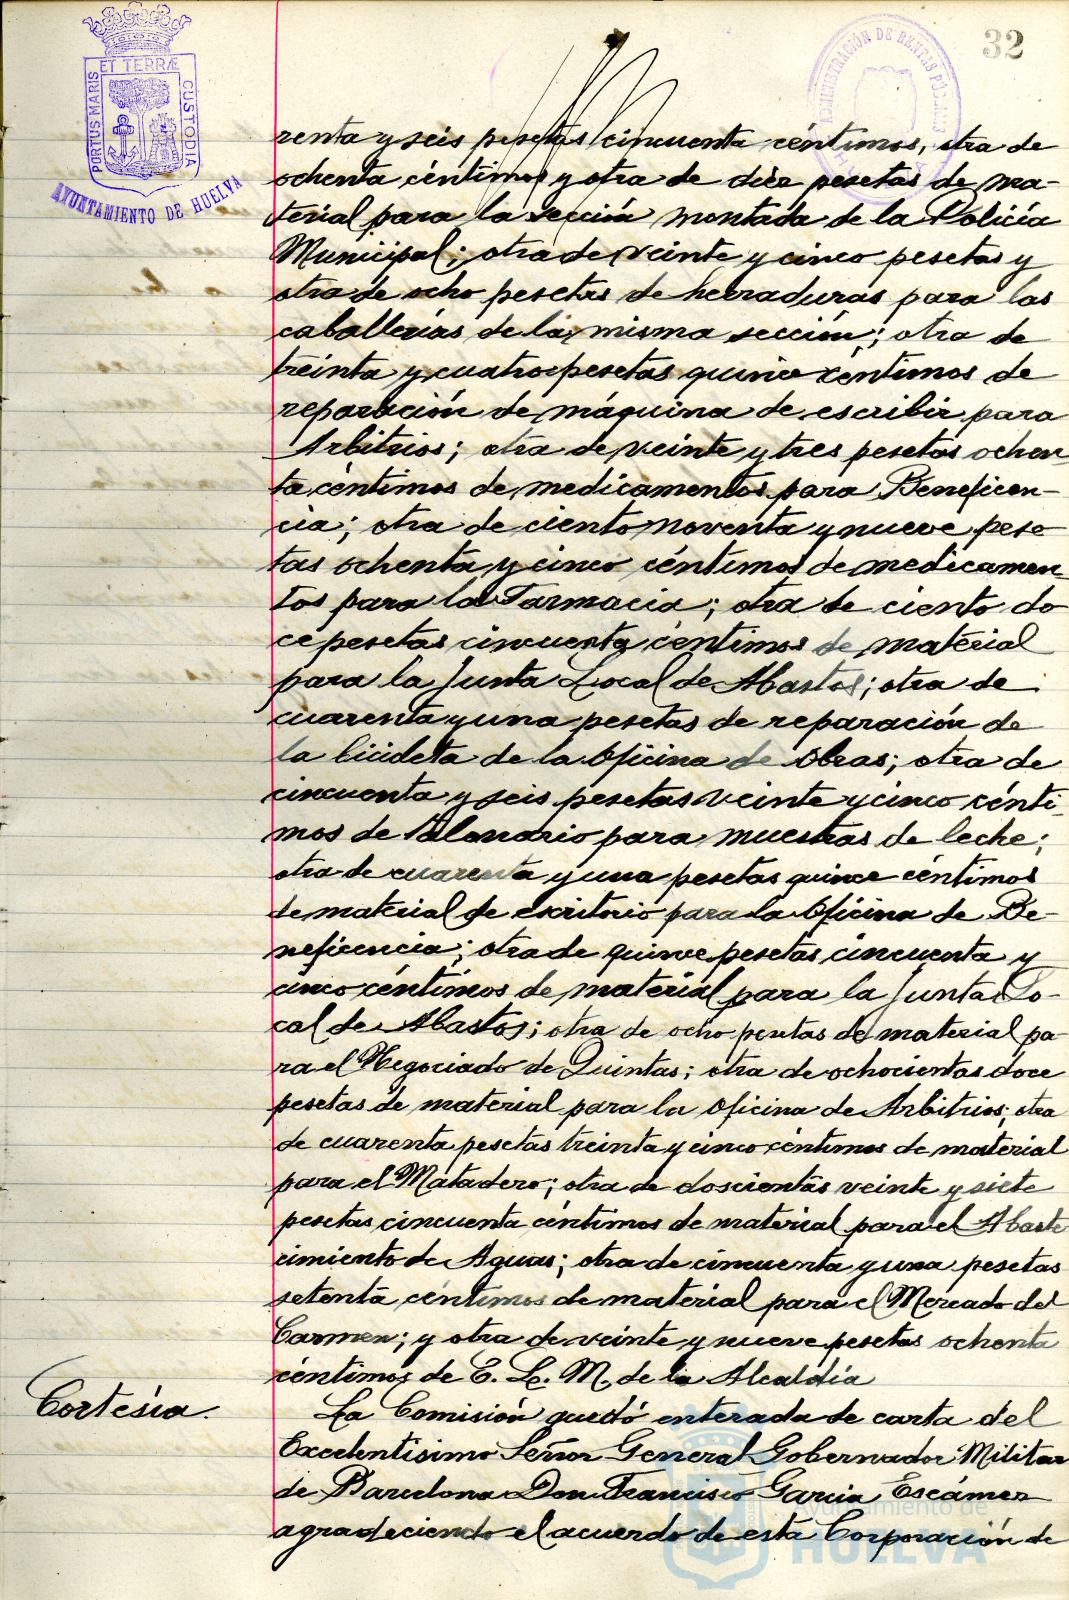 ET TERRÆ
PORTUS MARIS
CUSTODIA
AYUNTAMIENTO DE HUELVA
ADMINISTRACIÓN DE RENTAS PÚBLICAS
32
renta y seis pesetas cincuenta céntimos, otra de
ochenta céntimos y otra de diez pesetas de ma-
terial para la sección montada de la Policía
Municipal; otra de veinte y cinco pesetas y
otra de ocho pesetas de herraduras para las
caballerías de la misma sección; otra de
treinta y cuatro pesetas quince céntimos de
reparación de máquina de escribir para
Arbitrios; otra de veinte y tres pesetas ochen-
ta céntimos de medicamentos para Beneficen-
cia; otra de ciento noventa y nueve pese-
tas ochenta y cinco céntimos de medicamen-
tos para la Farmacia; otra de ciento do
ce pesetas cincuenta céntimos de material
para la Junta Local de Abastos; otra de
cuarenta y una pesetas de reparación de
la bicicleta de la Oficina de Obras; otra de
cincuenta y seis pesetas veinte y cinco cénti-
mos de talonario para muestras de leche;
otra de cuarenta y una pesetas quince céntimos
de material de escritorio para la Oficina de Be-
neficencia; otra de quince pesetas cincuenta y
cinco céntimos de material para la Junta Lo-
cal de Abastos; otra de ocho pesetas de material pa-
ra el Negociado de Quintas; otra de ochocientas doce
pesetas de material para la Oficina de Arbitrios; otra
de cuarenta pesetas treinta y cinco céntimos de material
para el Matadero; otra de doscientas veinte y siete
pesetas cincuenta céntimos de material para el Abaste
cimiento de Aguas; otra de cincuenta y una pesetas
setenta céntimos de material para el Mercado del
Carmen; y otra de veinte y nueve pesetas ochenta
céntimos de E. L. M. de la Alcaldía
Cortesía.
La Comisión quedó enterada de carta del
Excelentísimo Señor General Gobernador Militar
de Barcelona Don Francisco García Escámez
agradeciendo el acuerdo de esta Corporación de
Ayuntamiento de
HUELVA